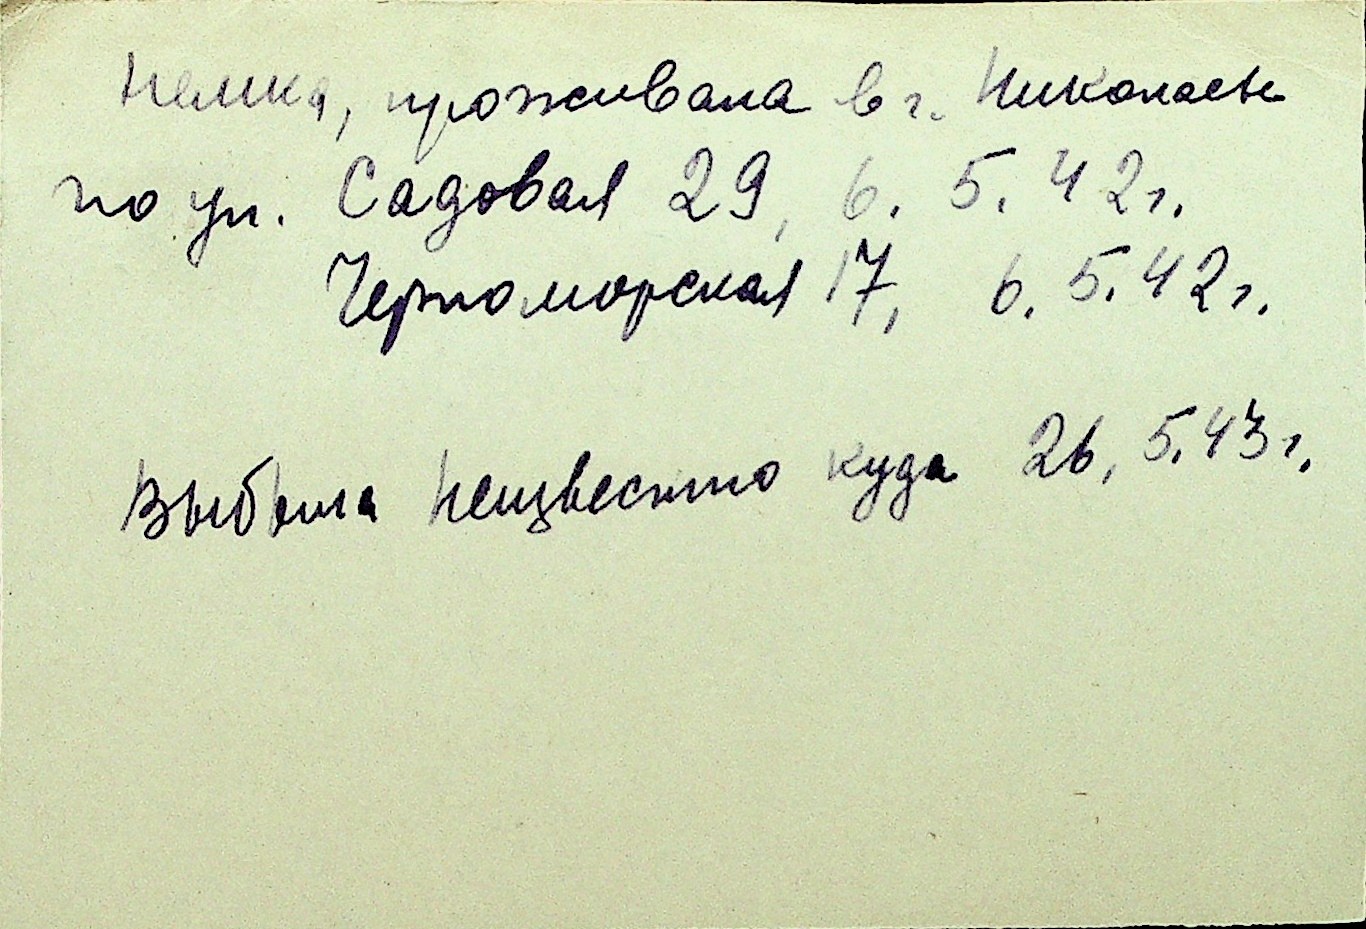 Немка, проживала в г. Николаеве
по ул. Садовая 29, 6. 5. 42г.
Черноморская 17, 6. 5. 42г.
Выбыла неизвестно куда 26, 5. 43г.